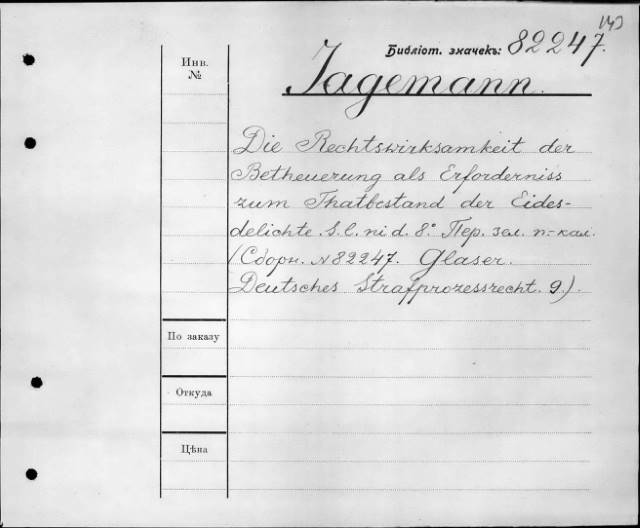 143
Библіот. значекъ: 82247.
Инв.
№
Jagemann.
Die Rechtswirksamkeit der
Betheuerung als Erforderniss
zum Thatbestand der Eides-
delichte. S. l. ni d. 8° Пер. зел. п.-кал.
(Сборн. №82247. Glaser.
Deutsches Strafprozessrecht. 9.).
По заказу
Откуда
Цѣна